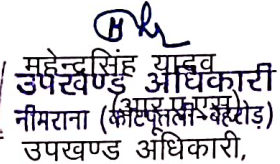 महेन्द्रसिंह यादव
उपखण्ड अधिकारी
(आर.ए.एस)
नीमराना (कोटपूतली-बहरोड़)
उपखण्ड अधिकारी,